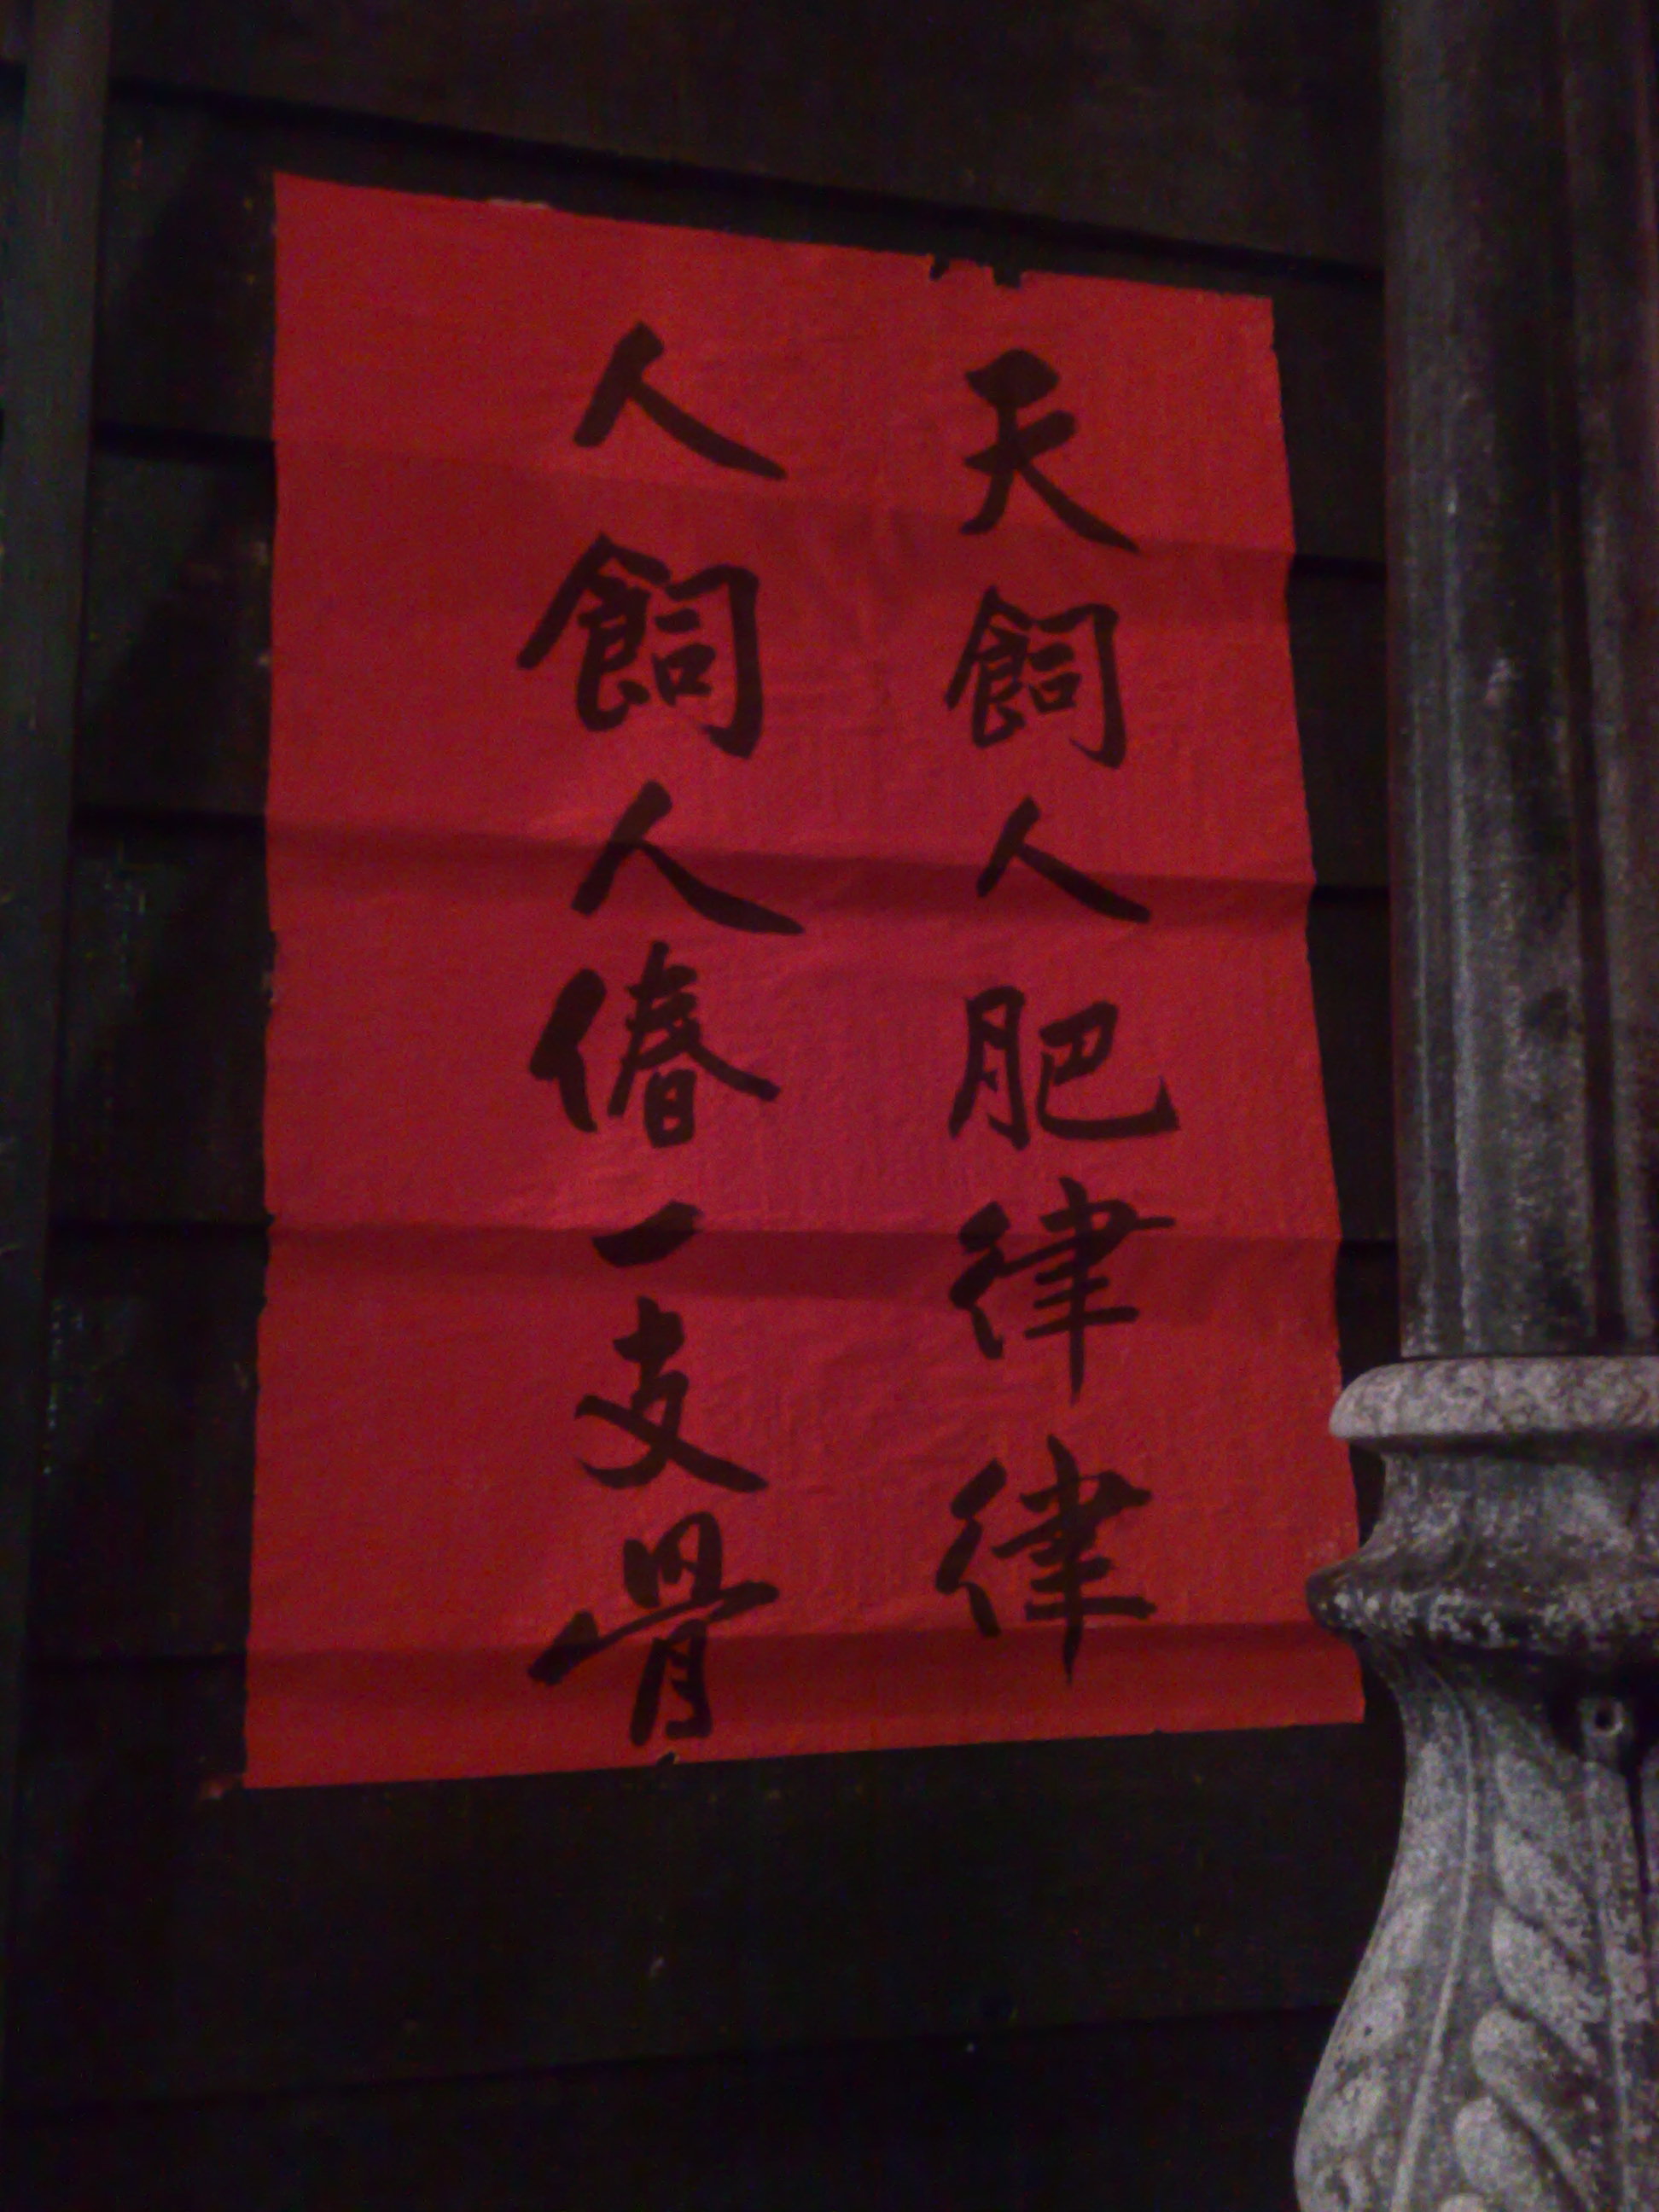 天飼人肥律律
人飼人偆一支骨